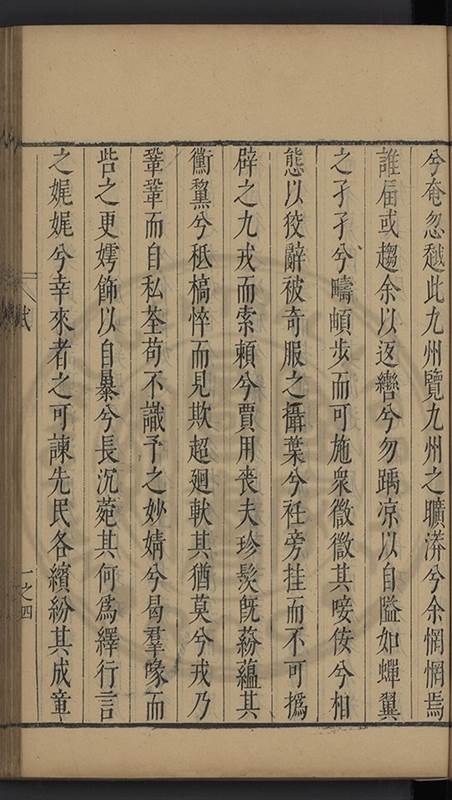 兮奄忽越此九州覽九州之曠漭兮余惘惘焉
誰屆或趨余以返轡兮勿踽凉以自隘如蟬翼
之孑孑兮疇頔步而可施衆微微其唼侒兮相
態以狡辭被奇服之攝葉兮衽旁挂而不可撝
辟之九戎而索賴兮賈用喪夫珍髮旣蒶蘊其
衞黧兮秪槁悴而見欺超廻軑其猶莫兮戎乃
鞏鞏而自私荃苟不識予之妙婧兮曷羣喙而
呰之更嫮飾以自暴兮長沉菀其何爲繹行言
之娓娓兮幸來者之可諫先民各繽紛其成章
賦
一之四